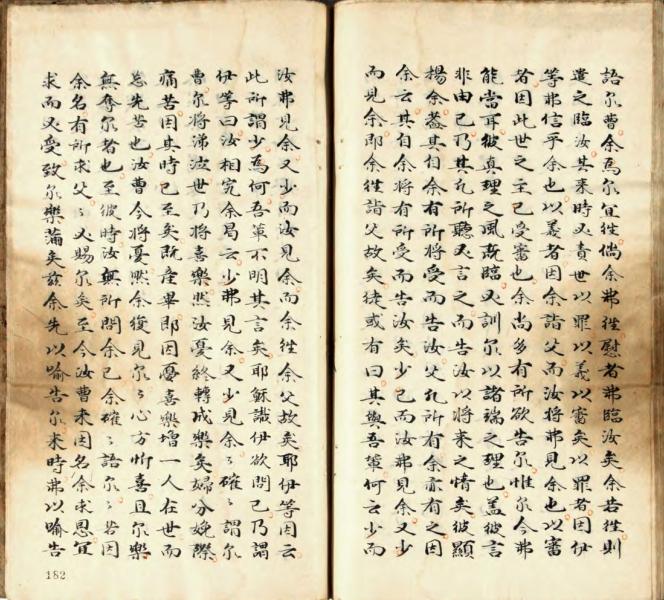 語尔曹余焉尔宜徃倘余弗徃慰者弗臨汝矣余若徃則
遣之臨汝其来時必責世以罪以義以審矣以罪者因伊
等弗信乎余也以義者因余詣父而汝將弗見余也以審
者因此世之主已受審也余尚多有所欲告尔惟尔今弗
能當耳彼真理之風既臨必訓尔以諸端之理也盖彼言
非由己乃其凢所聽必言之而告汝以將来之情矣彼顯
揚余葢其自余有所將受而告汝父凢所有余亦有之因
余云其自余將有所受而告汝矣少已而汝弗見余又少
而見余即余徃詣父故矣徒或有曰其與吾輩何云少而
汝弗見余又少而汝見余而余徃余父故矣耶伊等因云
此所謂少焉何吾輩不明其言矣耶穌識伊欲問己乃謂
伊等曰汝相究余曷云少弗見余又少見余〻確〻謂尔
曹尔將涕泣世乃將喜樂然汝憂終轉成樂矣婦分娩際
痛苦因其時已至矣既產畢即因憂喜樂增一人在世而
忘先苦也汝曹今將憂然余復見尔〻心方忻喜且尔樂
無奪尔者也至彼時汝無所問余已余確〻語尔〻若因
余名有所求父〻必賜尔矣至今汝曹未因名余求恩宜
求而必受致尔樂滿矣兹余先以喻告尔来時弗以喻告
182